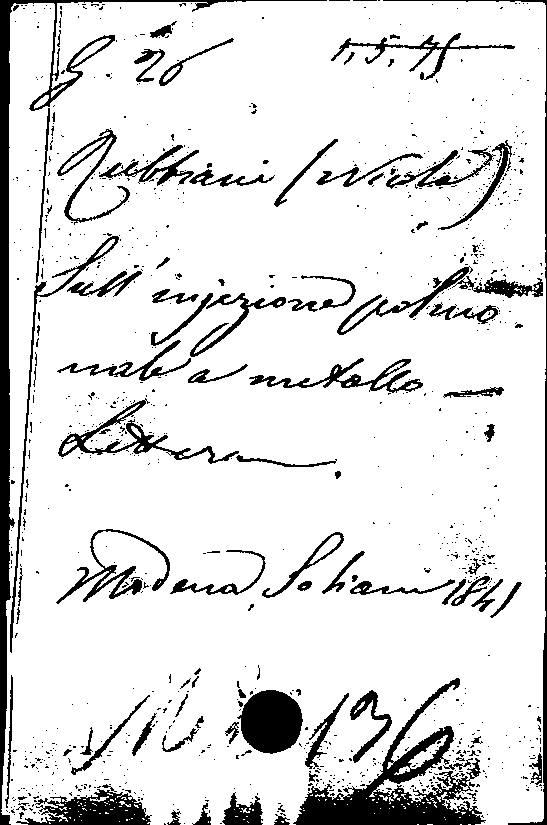 G. 26 1. 5. 75
Rubbiani (Nicola)
Sull'injezione polmo
nale a metallo —
Lettera.
Modena, Soliani 1841
M 136